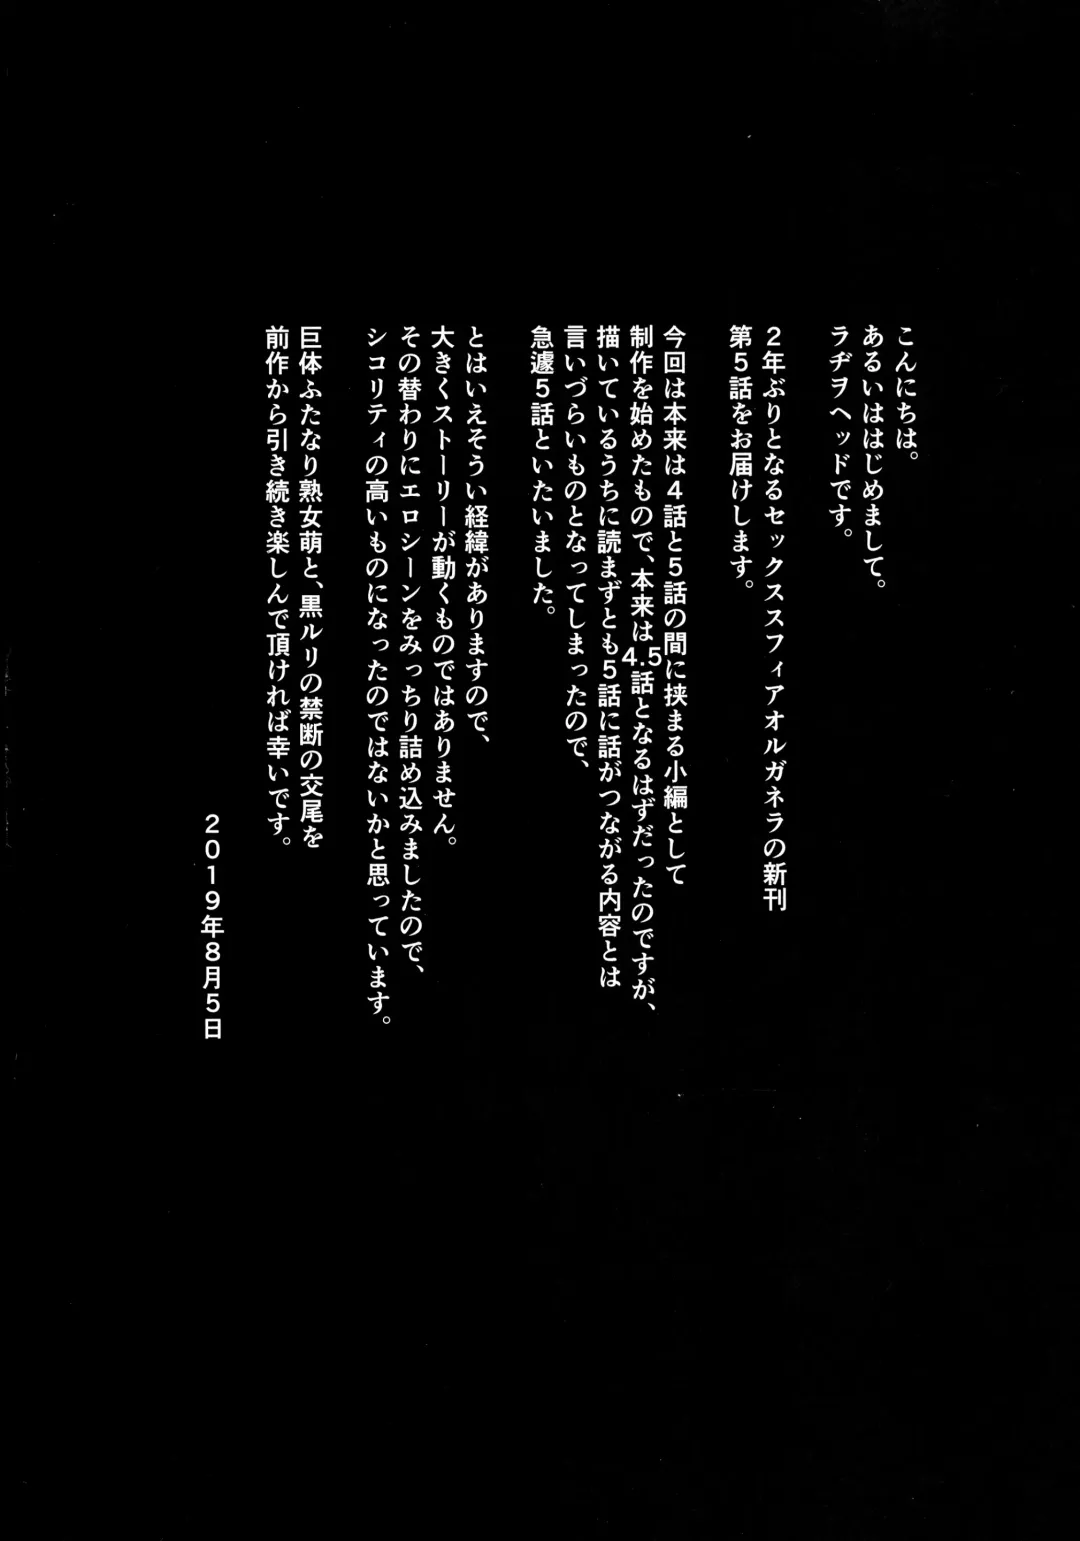 こんにちは。
あるいははじめまして。
ラヂヲヘッドです。
２年ぶりとなるセックススフィアオルガネラの新刊
第５話をお届けします。
今回は本来は４話と５話の間に挟まる小編として
制作を始めたもので、本来は4.5話となるはずだったのですが、
描いているうちに読まずとも５話に話がつながる内容とは
言いづらいものとなってしまったので、
急遽５話といたいました。
とはいえそうい経緯がありますので、
大きくストーリーが動くものではありません。
その替わりにエロシーンをみっちり詰め込みましたので、
シコリティの高いものになったのではないかと思っています。
巨体ふたなり熟女萌と、黒ルリの禁断の交尾を
前作から引き続き楽しんで頂ければ幸いです。
２０１９年８月５日